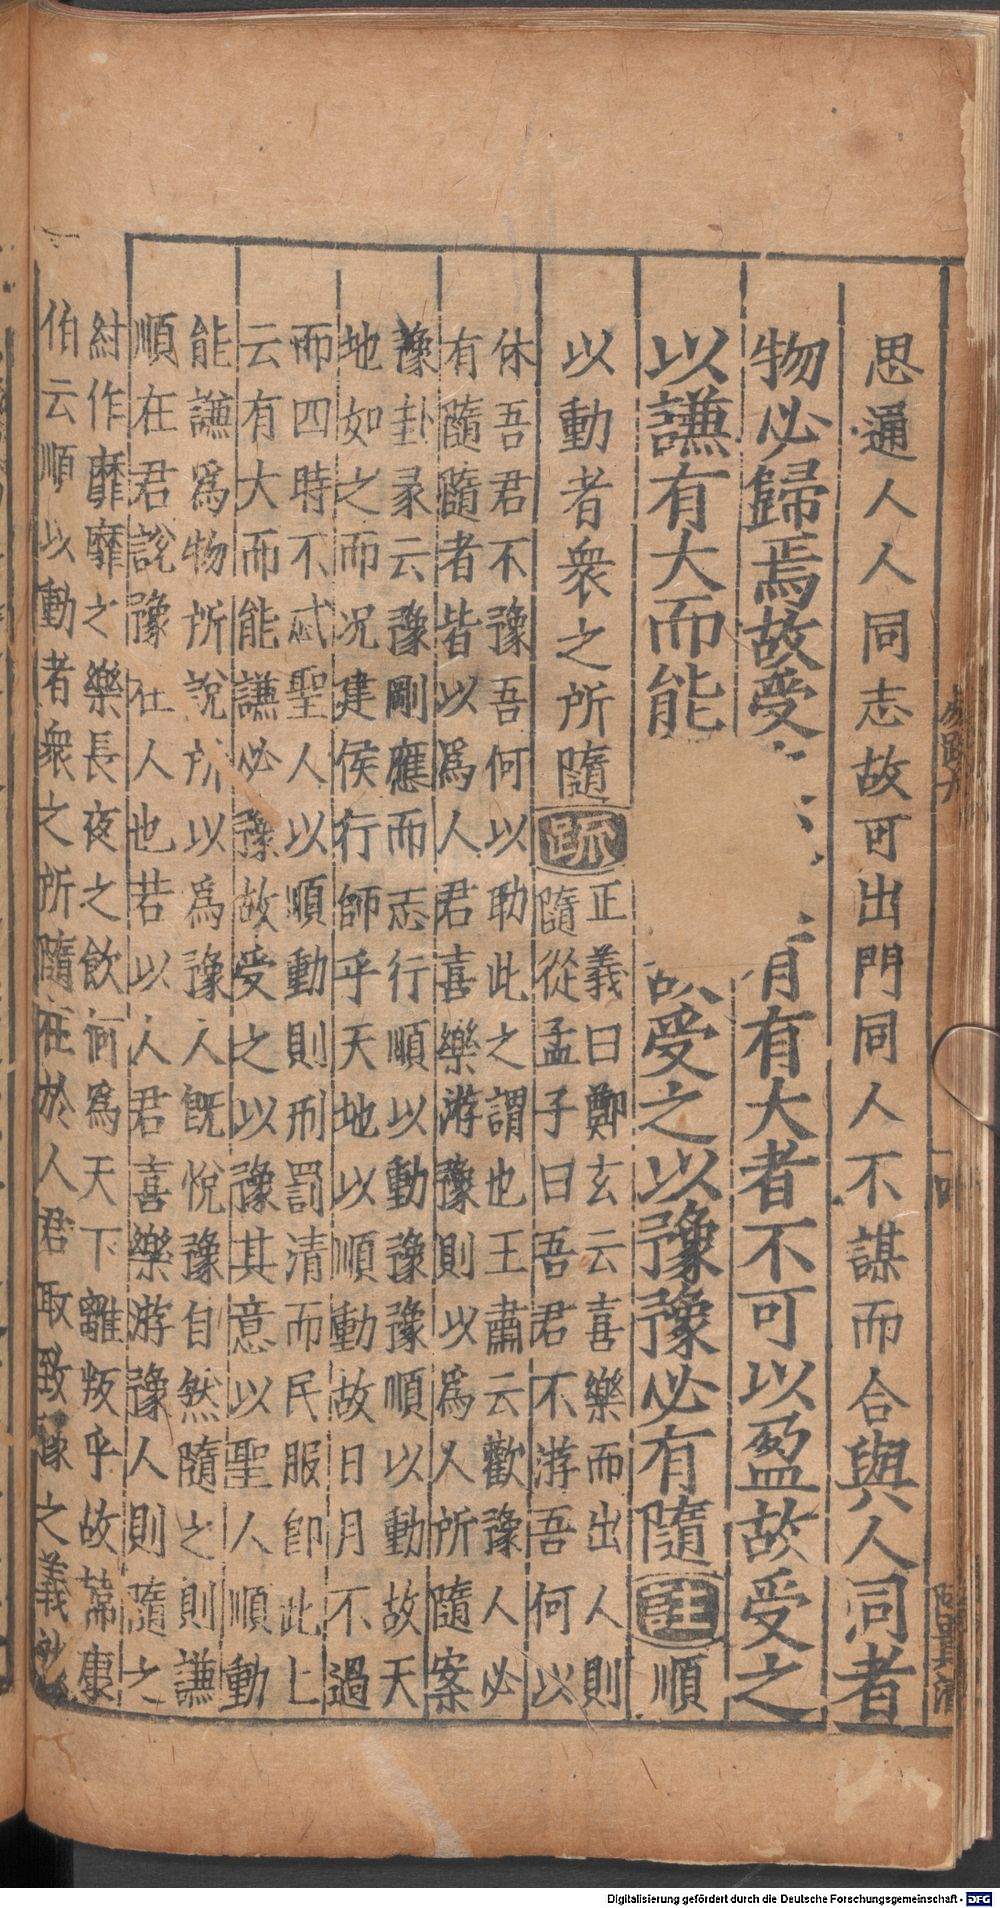 思通人人同志故可出門同人不謀而合與人同者
物必歸焉故受有有大者不可以盈故受之
以謙有大而能受之以豫豫必有隨註順
以動者衆之所隨䟽正義曰鄭玄云喜樂而出人則
隨從孟子曰吾君不游吾何以
休吾君不豫吾何以助此之謂也王肅云歡豫人必
有隨隨者皆以爲人君喜樂游豫則以爲人所隨案
豫卦彖云豫剛應而志行順以動豫豫順以動故天
地如之而况建侯行師乎天地以順動故日月不過
而四時不忒聖人以順動則刑罰清而民服即此上
云有大而能謙必豫故受之以豫其意以聖人順動
能謙爲物所說所以爲豫人旣悅豫自然隨之則謙
順在君說豫在人也若以人君喜樂游豫人則隨之
紂作靡靡之樂長夜之飲何爲天下離叛乎故韓康
伯云順以動者衆之所隨在於人君取致豫之義
Digitalisierung gefördert durch die Deutsche Forschungsgemeinschaft - DFG